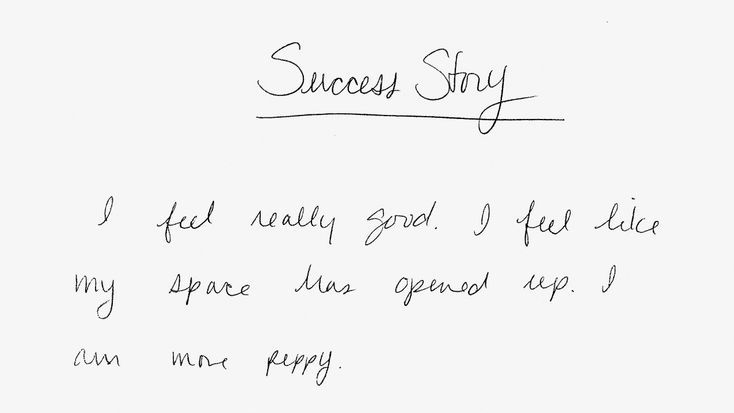 Success Story
I feel really good. I feel like
my space has opened up. I
am more peppy.